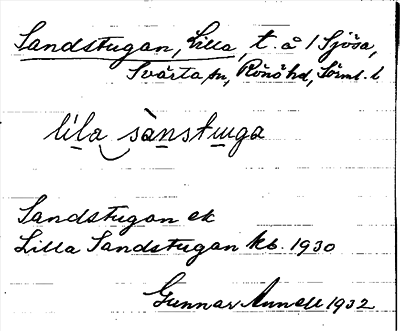 Sandstugan, Lilla, t. å / Sjösa,
Svärta sn, Rönö hd, Sörml. l
li̍la sa̍nstuga
Sandstugan ek
Lilla Sandstugan kb. 1930
Gunnar 1932